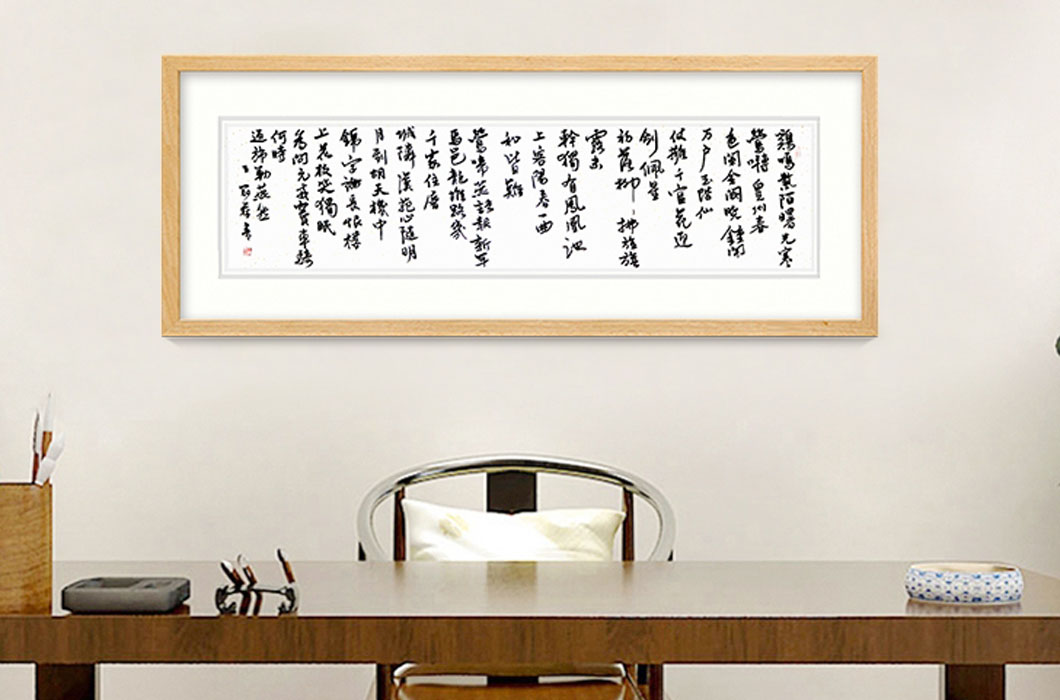 鷄鳴紫陌曙光寒
鶯囀皇州春
色闌金闕曉鐘開
万户玉階仙
仗擁千官花迎
劍佩星
初落柳拂旌旗
露未
幹獨有鳳凰池
上客陽春一曲
和皆難
鶯啼燕語報新年
馬邑龍堆路幾
千家住層
城隣漢苑心隨明
月到胡天機中
錦字論長恨樓
上花枝笑獨眠
為問元戎竇車騎
何時
返旆勒燕然